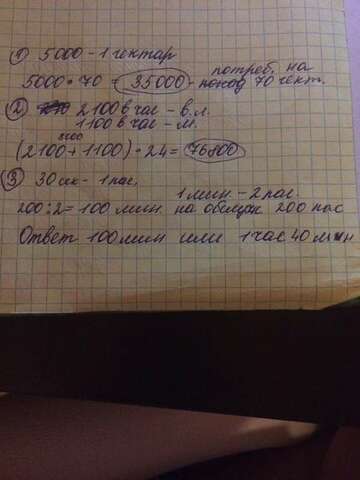 ① 5000 - 1 гектар
5000 · 70 = 35000 - потреб. на 70 гект.
② 2100 в час - в.л.
1100 в час - м.
3200
(2100 + 1100) · 24 = 76800
③ 30 сек - 1 пас,
1 мин. - 2 пас.
200 : 2 = 100 мин на 200 пас
Ответ 100 мин или 1 час 40 мин